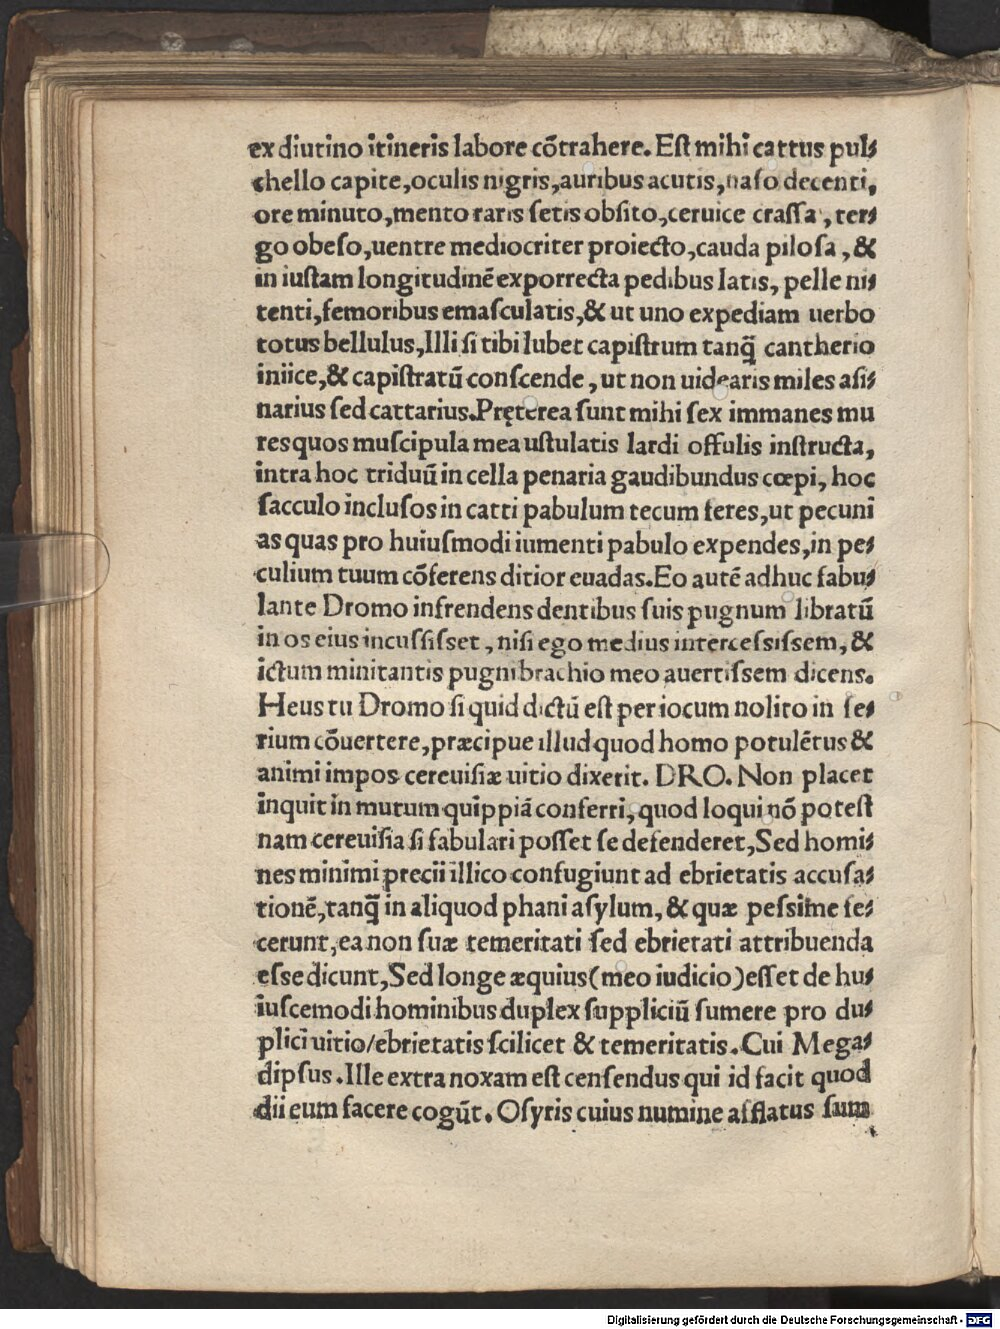 ex diutino itineris labore cõtrahere. Eſt mihi cattus pul⸗
chello capite, oculis nigris, auribus acutis, naſo decenti,
ore minuto, mento raris ſetis obſito, ceruice craſſa, ter⸗
go obeſo, uentre mediocriter proiecto, cauda piloſa, &
in iuſtam longitudinẽ exporrecta pedibus latis, pelle ni⸗
tenti, femoribus emaſculatis, & ut uno expediam uerbo
totus bellulus, Illi ſi tibi lubet capiſtrum tanq̃ cantherio
iniice, & capiſtratũ conſcende, ut non uidearis miles aſi⸗
narius ſed cattarius. Pręterea ſunt mihi ſex immanes mu
res quos muſcipula mea uſtulatis lardi offulis inſtructa,
intra hoc triduũ in cella penaria gaudibundus cœpi, hoc
ſacculo incluſos in catti pabulum tecum feres, ut pecuni
as quas pro huiuſmodi iumenti pabulo expendes, in pe⸗
culium tuum cõferens ditior euadas. Eo autẽ adhuc fabu⸗
lante Dromo infrendens dentibus ſuis pugnum libratũ
in os eius incuſſiſset, niſi ego medius interceſsiſsem, &
ictum minitantis pugni brachio meo auertiſsem dicens.
Heus tu Dromo ſi quid dictũ eſt per iocum nolito in ſe⸗
rium cõuertere, præcipue illud quod homo potulẽtus &
animi impos cereuiſiæ uitio dixerit. DRO. Non placet
inquit in mutum quippiã conferri, quod loqui nõ poteſt
nam cereuiſia ſi fabulari poſſet ſe defenderet, Sed homi⸗
nes minimi precii illico confugiunt ad ebrietatis accuſa⸗
tionẽ, tanq̃ in aliquod phani aſylum, & quæ peſsime fe⸗
cerunt, ea non ſuæ temeritati ſed ebrietati attribuenda
eſse dicunt, Sed longe æquius (meo iudicio) eſſet de hu⸗
iuſcemodi hominibus duplex ſuppliciũ ſumere pro du⸗
plici uitio/ebrietatis ſcilicet & temeritatis. Cui Mega⸗
dipſus. Ille extra noxam eſt cenſendus qui id facit quod
dii eum facere cogũt. Oſyris cuius numine afflatus ſum
Digitalisierung gefördert durch die Deutsche Forschungsgemeinschaft - DFG